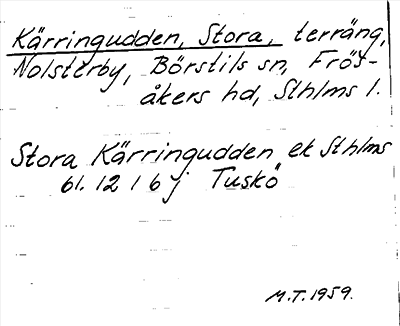 Kärringudden, Stora, terräng,
Nolsterby, Börstils sn, Frös-
åkers hd, Sthlms l.
Stora Kärringudden ek Sthlms
bl. 12 1 6 j Tuskö
M.T. 1959.